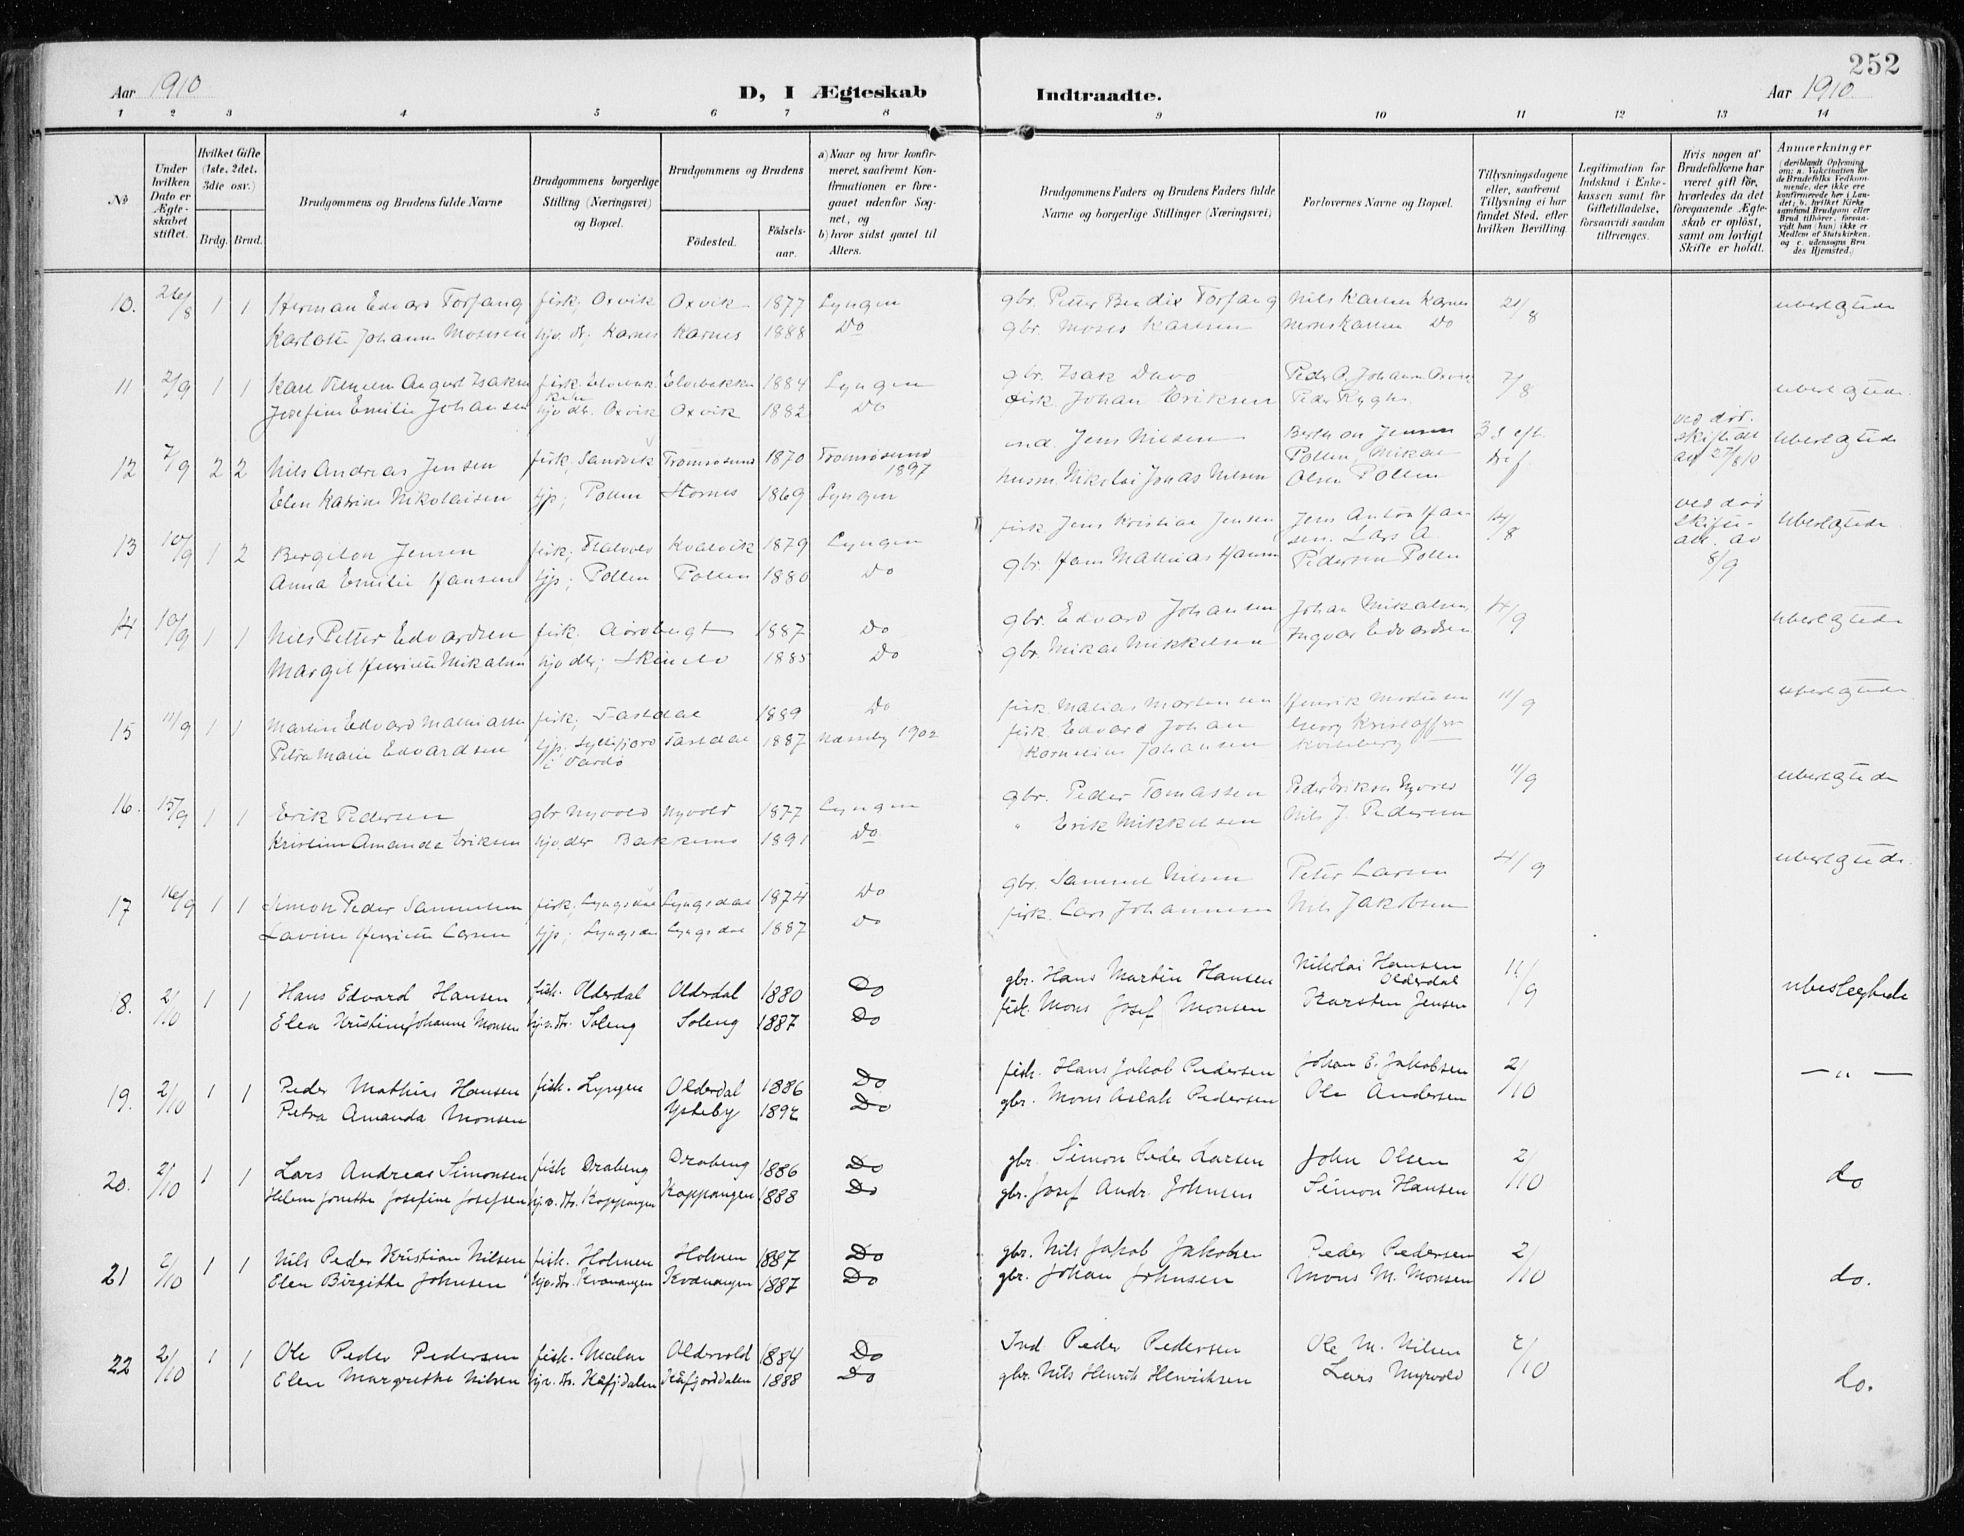 252
Aar 1910
D, I Ægteskab
Indtraadte.
Aar 1910.
1 2 3 4 5 6 7 8 9 10 11 12 13 14
No
Under hvilken Dato er Ægteskabet stiftet.
Hvilket Gifte (1ste, 2det, 3die osv.)
Brdg. Brud.
Brudgommens og Brudens fulde Navne
Brudgommens borgerlige Stilling (Næringsvei) og Bopæl.
Brudgommens og Brudens
Födested.
Födselsaar.
a) Naar og hvor konfirmeret, saafremt Konfirmationen er foregaaet udenfor Sognet, og
b) hvor sidst gaaet til Alters.
Brudgommens Faders og Brudens Faders fulde Navne og borgerlige Stillinger (Næringsvei)
Forlovernes Navne og Bopæl.
Tillysningsdagene eller, saafremt Tillysning ei har fundet Sted, efter hvilken Bevilling.
Legitimation for Indskud i Enkekassen samt for Giftetilladelse, forsaavidt saadan tiltrænges.
Hvis nogen af Brudefolkene har været gift før, hvorledes da det foregaaende Ægteskab er oplöst, samt om lovligt Skifte er holdt.
Anmærkninger
(deriblandt Oplysning om: a. Vakcination for de Brudefolks Vedkommende, der ikke ere konfirmerede her i Landet; b. hvilket Kirkesamfund Brudgom eller Brud tilhörer, forsaavidt han (hun) ikke er Medlem af Statskirken, og c. udensogns Brudes Hjemsted.)
10. 26/8 1 1 Herman Edvard Torfang fisk; Oxvik Oxvik 1877 Lyngen gbr. Petter Bendix Torfang Nils Karlsen Karnes 21/8 ubeslægtede
Karlotte Johanne Mosesen hjv. dr; Karnes Karnes 1888 Do gbr. Moses Karlsen Mons Karlsen Do
11 2/9 1 1 Karl Vilhelm August Isaksen fisk. Elvebakken Elvebakken 1884 Lyngen gbr. Isak Davo Peder A. Johansen Oxvik 7/8 ubeslægtede.
Josefine Emilie Johansen hjv. der. Oxvik Oxvik 1882 Do fisk. Johan Eriksen Peder Rygh.
12 7/9 2 2 Nils Andreas Jensen fisk; Sandvik Tromsøsund 1870 Tromsøsund 1897 ind. Jens Nilsen Pollen, Mikal 3 s eft. ved død. skifteatt av 27/8 10 ubeslægtede
Elen Katrine Nikolaisen hjp; Pollen Stornes 1869 Lyngen husm. Nikolai Jonas Nilsen Olsen Pollen
13 10/9 1 2 Bergiton Jensen fisk; Kvalvik 1879 Lyngen fisk. Jens Kristian Jensen Jens Anton Hansen. Lars A. 14/8 ved død skifteatt. av 8/9 ubeslægtede
Anna Emilie Hansen hjp; Pollen Pollen 1880 Do gbr. Hans Mathias Hansen Pedersen Pollen
14 10/9 1 1 Nils Petter Edvardsen fisk. 1887 Do gbr. Edvard Johansen Johan Mikalsen, 4/9 ubeslægtede
Margit Henriette Mikalsen hjv der; 1885 Do gbr. Mikal Mikkelsen Ingvar Edvardsen
15 11/9 1 1 Martin Edvard Mathiassen fisk; Fastdal 1889 Do fisk Matias Mortensen Henrik Mortensen 11/9 ubeslægtede
Petra Marie Edvardsen hjp; Syltefjord i Vardø Fastdal 1887 Næsseby 1902 fisk. Edvard Johan Kornelius Johansen Georg Kristoffersen
16. 15/9 1 1 Erik Pedersen gbr Nyvold Nyvold 1877 Lyngen gbr. Peder Tomassen Peder Eriksen Nyvold 11/9 ubeslægtede
Kristine Amanda Eriksen hjv. der 1891 Do " Erik Mikkelsen Nils J. Pedersen
17 16/9 1 1 Simon Peder Samuelsen fisk; Lyngsdal Lyngsdal 1874 Do gbr. Samuel Nilsen Peter Larsen 4/9 ubeslægtede.
Lavine Henriette Larsen hjp; Lyngsdal Lyngsdal 1887 Do fisk. Lars Johannesen Nils Jakobsen
18. 2/10 1 1 Hans Edvard Hansen fisk. Olderdal Olderdal 1880 Do gbr. Hans Martin Hansen Nikolai Hansen Olderdal 11/9 ubeslegtede
Elen Kristine Johanne Monsen hjv. dtr. Soleng Soleng 1887 Do fisk. Mons Josef Monsen Karsten Jensen
19. 2/10 1 1 Peder Mathias Hansen fisk. Lyngen Olderdal 1886 Do fisk. Hans Jakob Pedersen Johan E. Jakobsen 2/10 — " —
Petra Amanda Monsen Ysteby 1892 Do gbr. Mons Aslak Pedersen Ole Andersen
20. 2/10 1 1 Lars Andreas Simonsen fisk Drabeng Drabeng 1886 Do gbr. Simon Peder Larsen John Olsen 2/10 do
Helene Jonette Josefine Josefsen hjv. dtr. Koppangen Koppangen 1888 Do gbr. Josef Andr. Johnsen Simon Hansen
21 2/10 1 1 Nils Peder Kristian Nilsen fisk. Holmen Holmen 1887 Do gbr. Nils Jakob Jakobsen Peder Pedersen 2/10 do.
Elen Birgitte Johnsen hjv. dtr. Kvænangen Kvænangen 1887 Do gbr. Johan Johnsen Mons M. Monsen
22 2/10 1 1 Ole Peder Pedersen fisk. Oldervold 1884 Do Ind Peder Pedersen Ole M. Nilsen 2/10 do.
Elen Margrethe Nilsen hjv. dtr. Kåfjdalen Kåfjorddalen 1888 Do gbr. Nils Henrik Henriksen Lars Myrvold